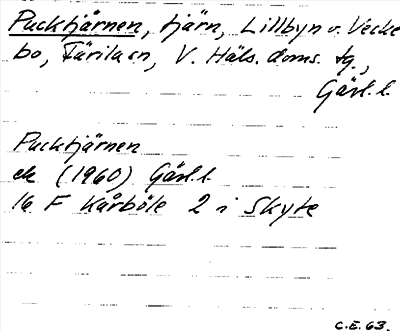 Pucktjärnen, tjärn, Lillbyn o. Vecke
bo, Färila sn, V. Häls. doms. tg.,
Gävl. l.
Pucktjärnen
ek (1960) Gävl. l.
16 F Kårböle 2 i Skyte
C.E. 63.